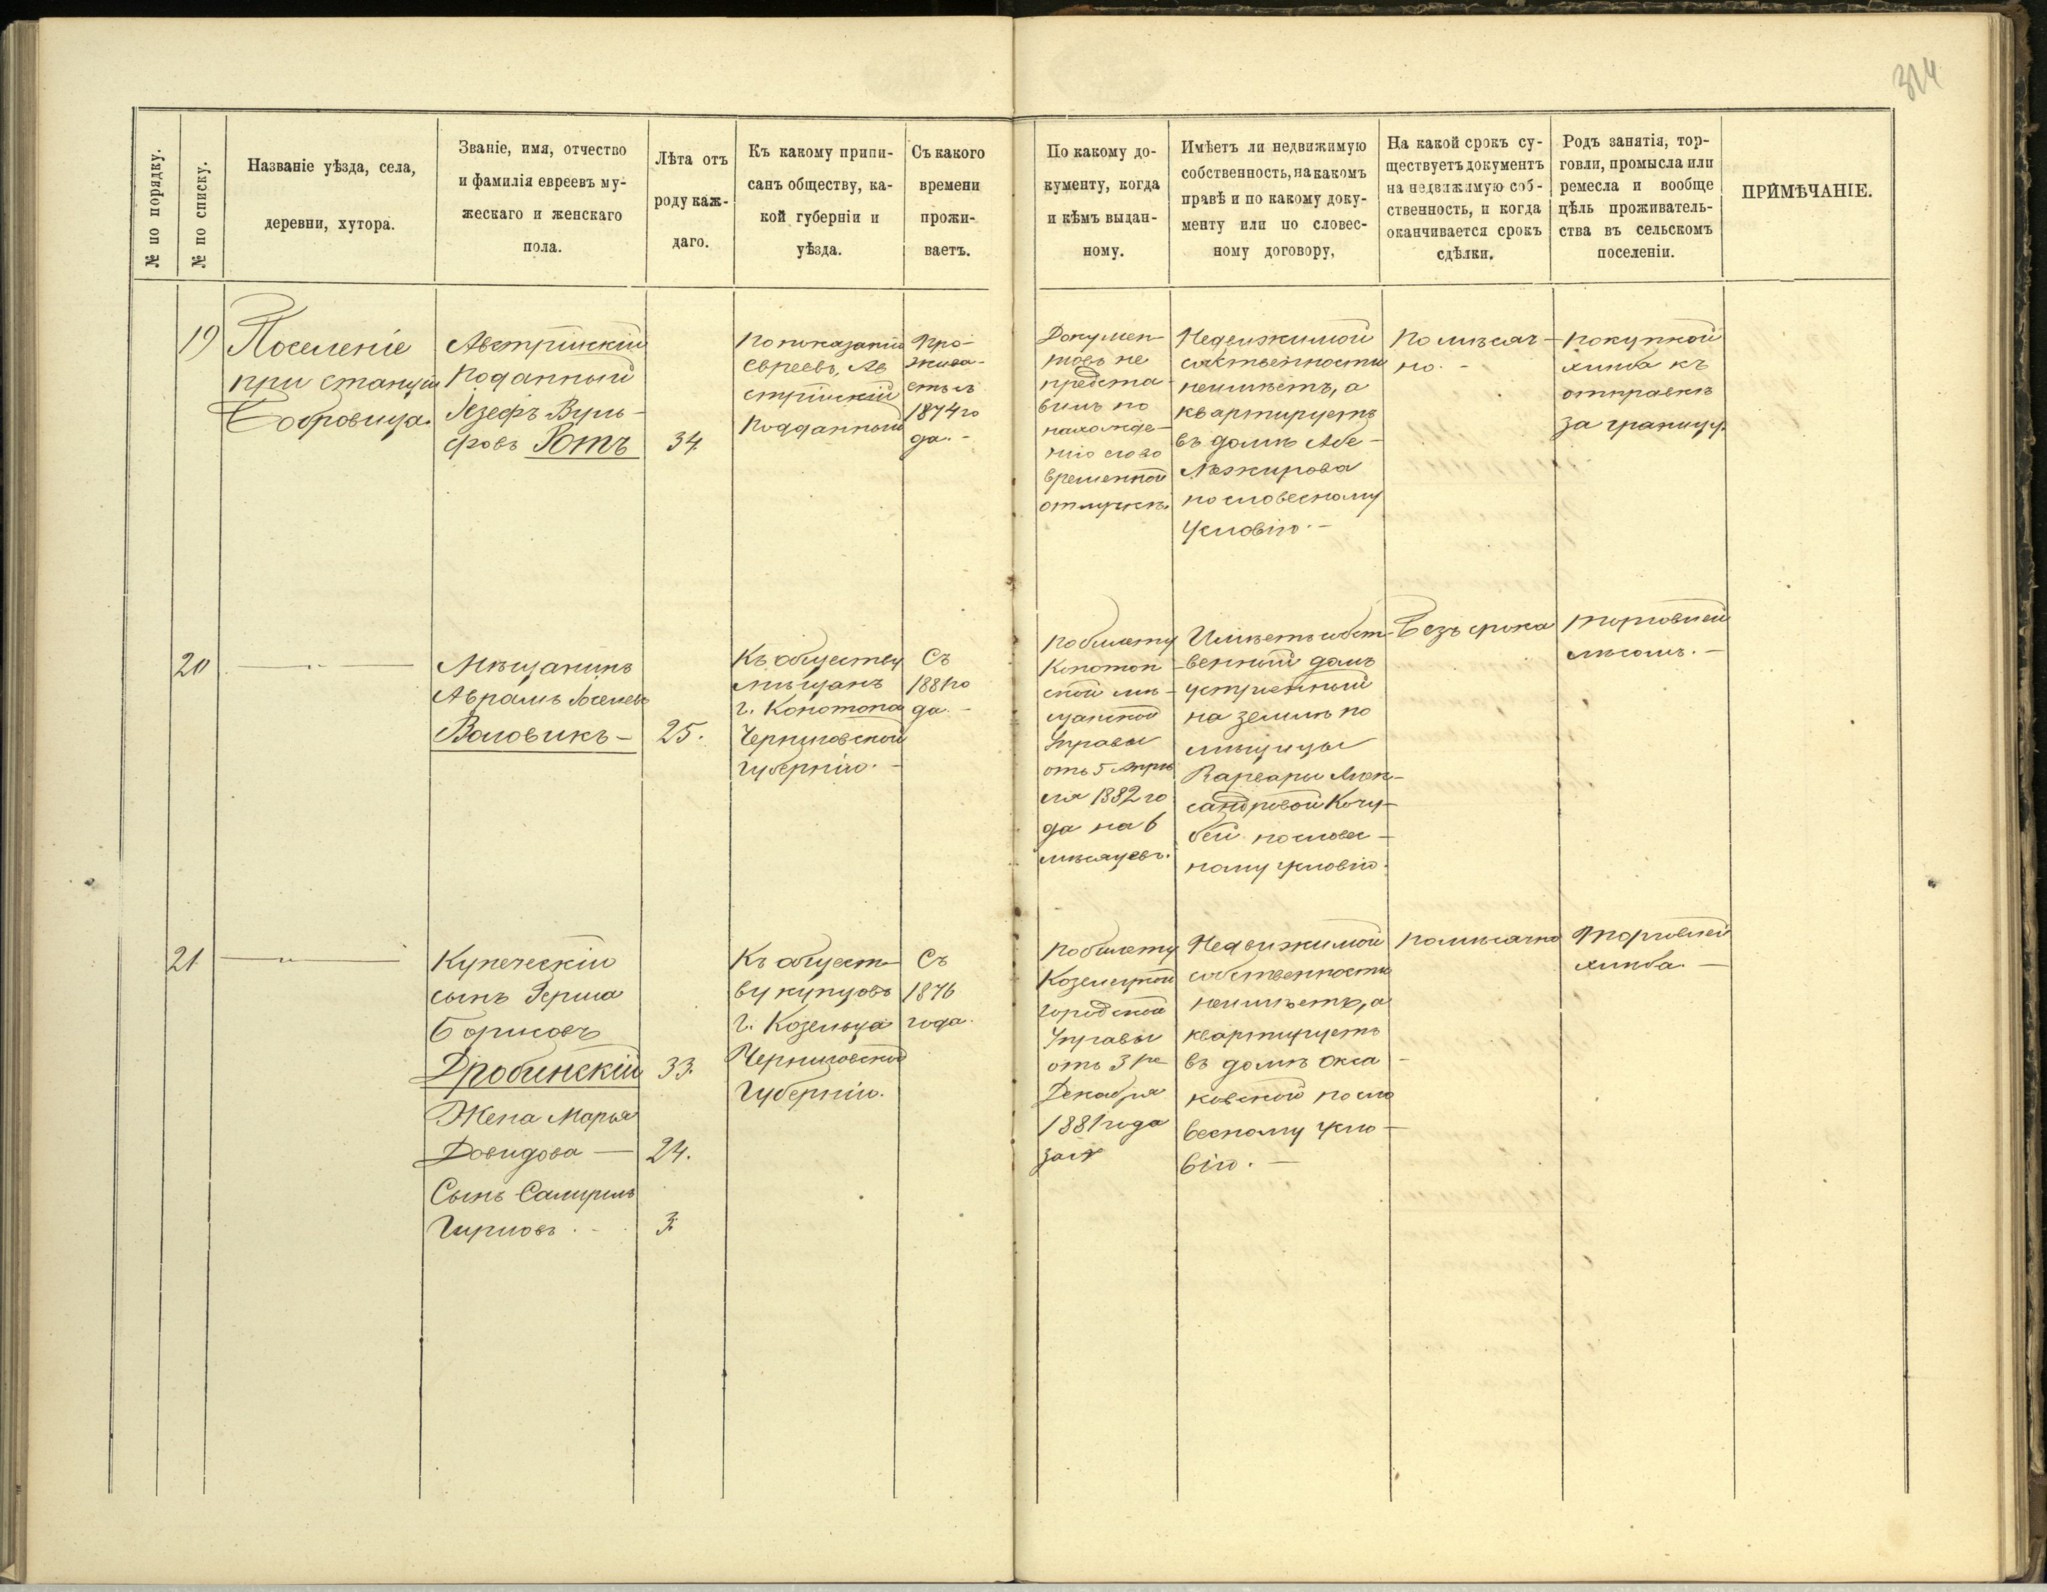 314
№ по порядку.
№ по списку.
Названіе уѣзда, села,
деревни, хутора.
Званіе, имя, отчество
и фамилія евреевъ му-
жескаго и женскаго
пола.
Лѣта отъ
роду каж-
даго.
Къ какому припи-
санъ обществу, ка-
кой губерніи и
уѣзда.
Съ какого
времени
прожи-
ваетъ.
По какому до-
кументу, когда
и кѣмъ выдан-
ному.
Имѣетъ ли недвижимую
собственность, на какомъ
правѣ и по какому доку-
менту или по словес-
ному договору,
На какой срокъ су-
ществуетъ документъ
на недвижимую соб-
ственность, и когда
оканчивается срокъ
сдѣлки.
Родъ занятія, тор-
говли, промысла или
ремесла и вообще
цѣль проживатель-
ства въ сельскомъ
поселеніи.
ПРИМѢЧАНІЕ.
19
Поселеніе
при станціи
Бобровица.
Австрійскій
Поданный
Іезефъ Вуль-
фовъ Ротъ
34
По показанію
евреевъ, Ав
стрійскій
Подданный
Про-
жива-
етъ съ
1874 го
да. -
Докумен-
товъ не
предста-
вилъ по
нахожде-
нію его во
временной
отлучкѣ.
Недвижимой
собственности
неимѣетъ, а
квартируетъ
въ домѣ
по словесному
условію. -
Помѣсяч-
но. -
покупкой
хлѣба къ
отправкѣ
за границу.
20
— " —
Мѣщанинъ
Аврамъ
Воловикъ -
25.
Къ обществу
мѣщанъ
г. Конотопа
Черниговской
Губерніи. -
Съ
1881 го
да. -
По билету
Конотоп
ской мѣ-
щанской
Управы
отъ 5 Апрѣ
ля 1882 го
да на 6
мѣсяцевъ.
Имѣетъ собст-
венный домъ
устроенный
на землѣ по
мѣщицы
Варвары Алек-
сандровой Кочу-
бей по словес-
ному условію.
Безъ срока
торговлей
лѣсомъ. -
21
— " —
Купеческій
сынъ Герша
Борисовъ
Дробинскій
33.
Жена Марья
Довидова —
24.
Сынъ Самуилъ
Гиршовъ. -
3.
Къ общест-
ву купцовъ
г. Козельца
Черниговской
Губерніи.
Съ
1876
года.
По билету
Козелецкой
городской
Управы
отъ 3 го
Декабря
1881 года
за №
Недвижимой
собственности
неимѣетъ, а
квартируетъ
въ домѣ Окса-
ковской по сло
весному усло-
вію. -
помѣсячно
Торговлей
хлѣба. -